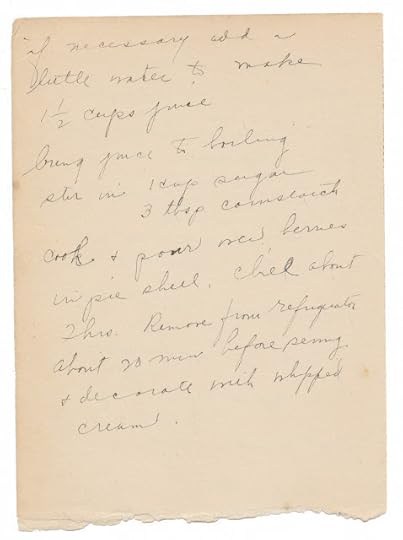 if necessary add a
little water to make
1 1/2 cups juice
bring juice to boiling
stir in 1 cup sugar
3 tbsp cornstarch
cook & pour over berries
in pie shell. Chill about
2 hrs. Remove from refrigerator
about 20 min before serving
& decorate with whipped
cream.